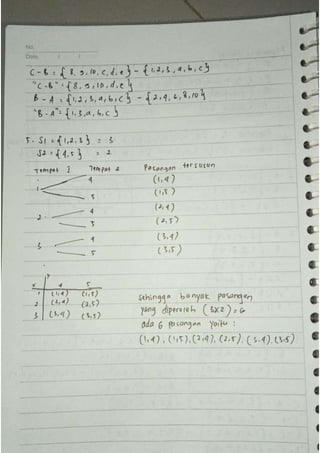 No.
Date
C - B = { 8, 9, 10, c, d, e } - { 1, 2, 3, a, b, c }
"C - B" = { 8, 9, 10, d, e }
B - A = { 1, 2, 3, a, b, c } - { 2, 4, 6, 8, 10 }
"B - A" = { 1, 3, a, b, c }
5. S1 = { 1, 2, 3 } = 3
S2 = { 4, 5 } = 2
Tempat 1 Tempat 2 Pasangan tersusun
1 4 (1,4)
5 (1,5)
2 4 (2,4)
5 (2,5)
3 4 (3,4)
5 (3,5)
x 4 5
1 (1,4) (1,5)
2 (2,4) (2,5)
3 (3,4) (3,5)
Sehingga banyak pasangan
yang diperoleh (3x2) = 6
ada 6 pasangan yaitu :
(1,4), (1,5), (2,4), (2,5), (3,4), (3,5)